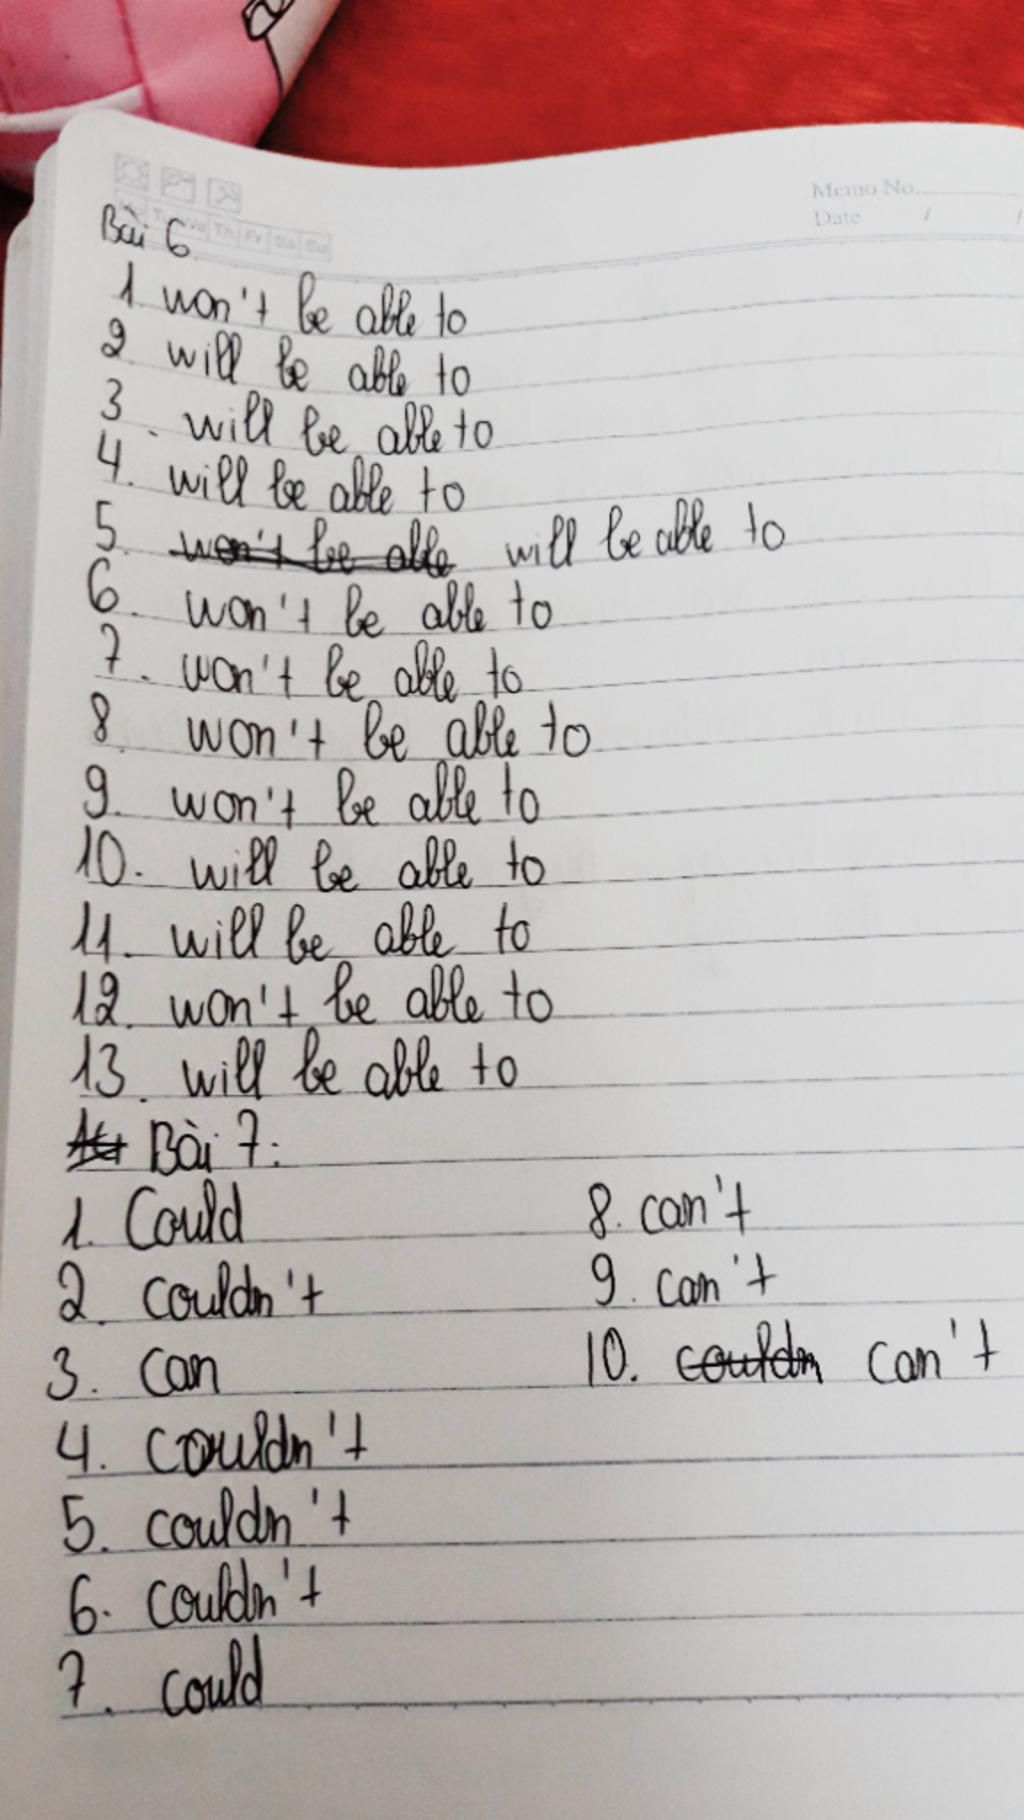 Memo No.
Date / /
Mo Tu We Th Fr Sa Su
Bài 6
1 won't be able to
2 will be able to
3. will be able to
4. will be able to
5. won't be able will be able to
6. won't be able to
7. won't be able to
8. won't be able to
9. won't be able to
10. will be able to
11. will be able to
12. won't be able to
13. will be able to
Bài 7:
1. Could
2. couldn't
3. can
4. couldn't
5. couldn't
6. couldn't
7. could
8. can't
9. can't
10. couldn can't